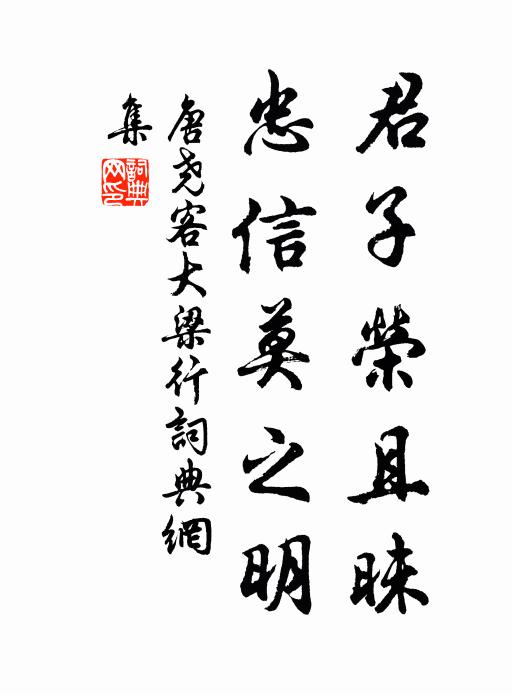 君子榮且昧
忠信莫之明
唐堯客大梁行詞典網
集
詞典
网印